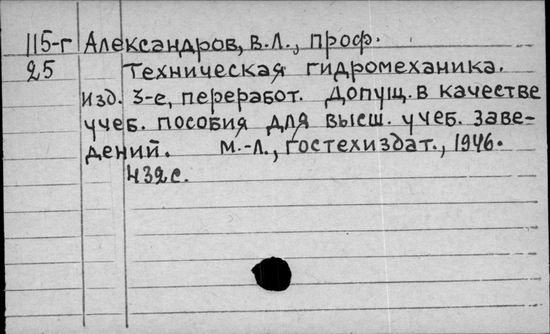 115-г Александров, В.Л., проф.
25 Техническая гидромеханика.
Изд. 3-е, переработ. Допущ. в качестве
учеб. пособия для высш. учеб. заве-
дений. М.-Л., Гостехиздат., 1946.
432 с.